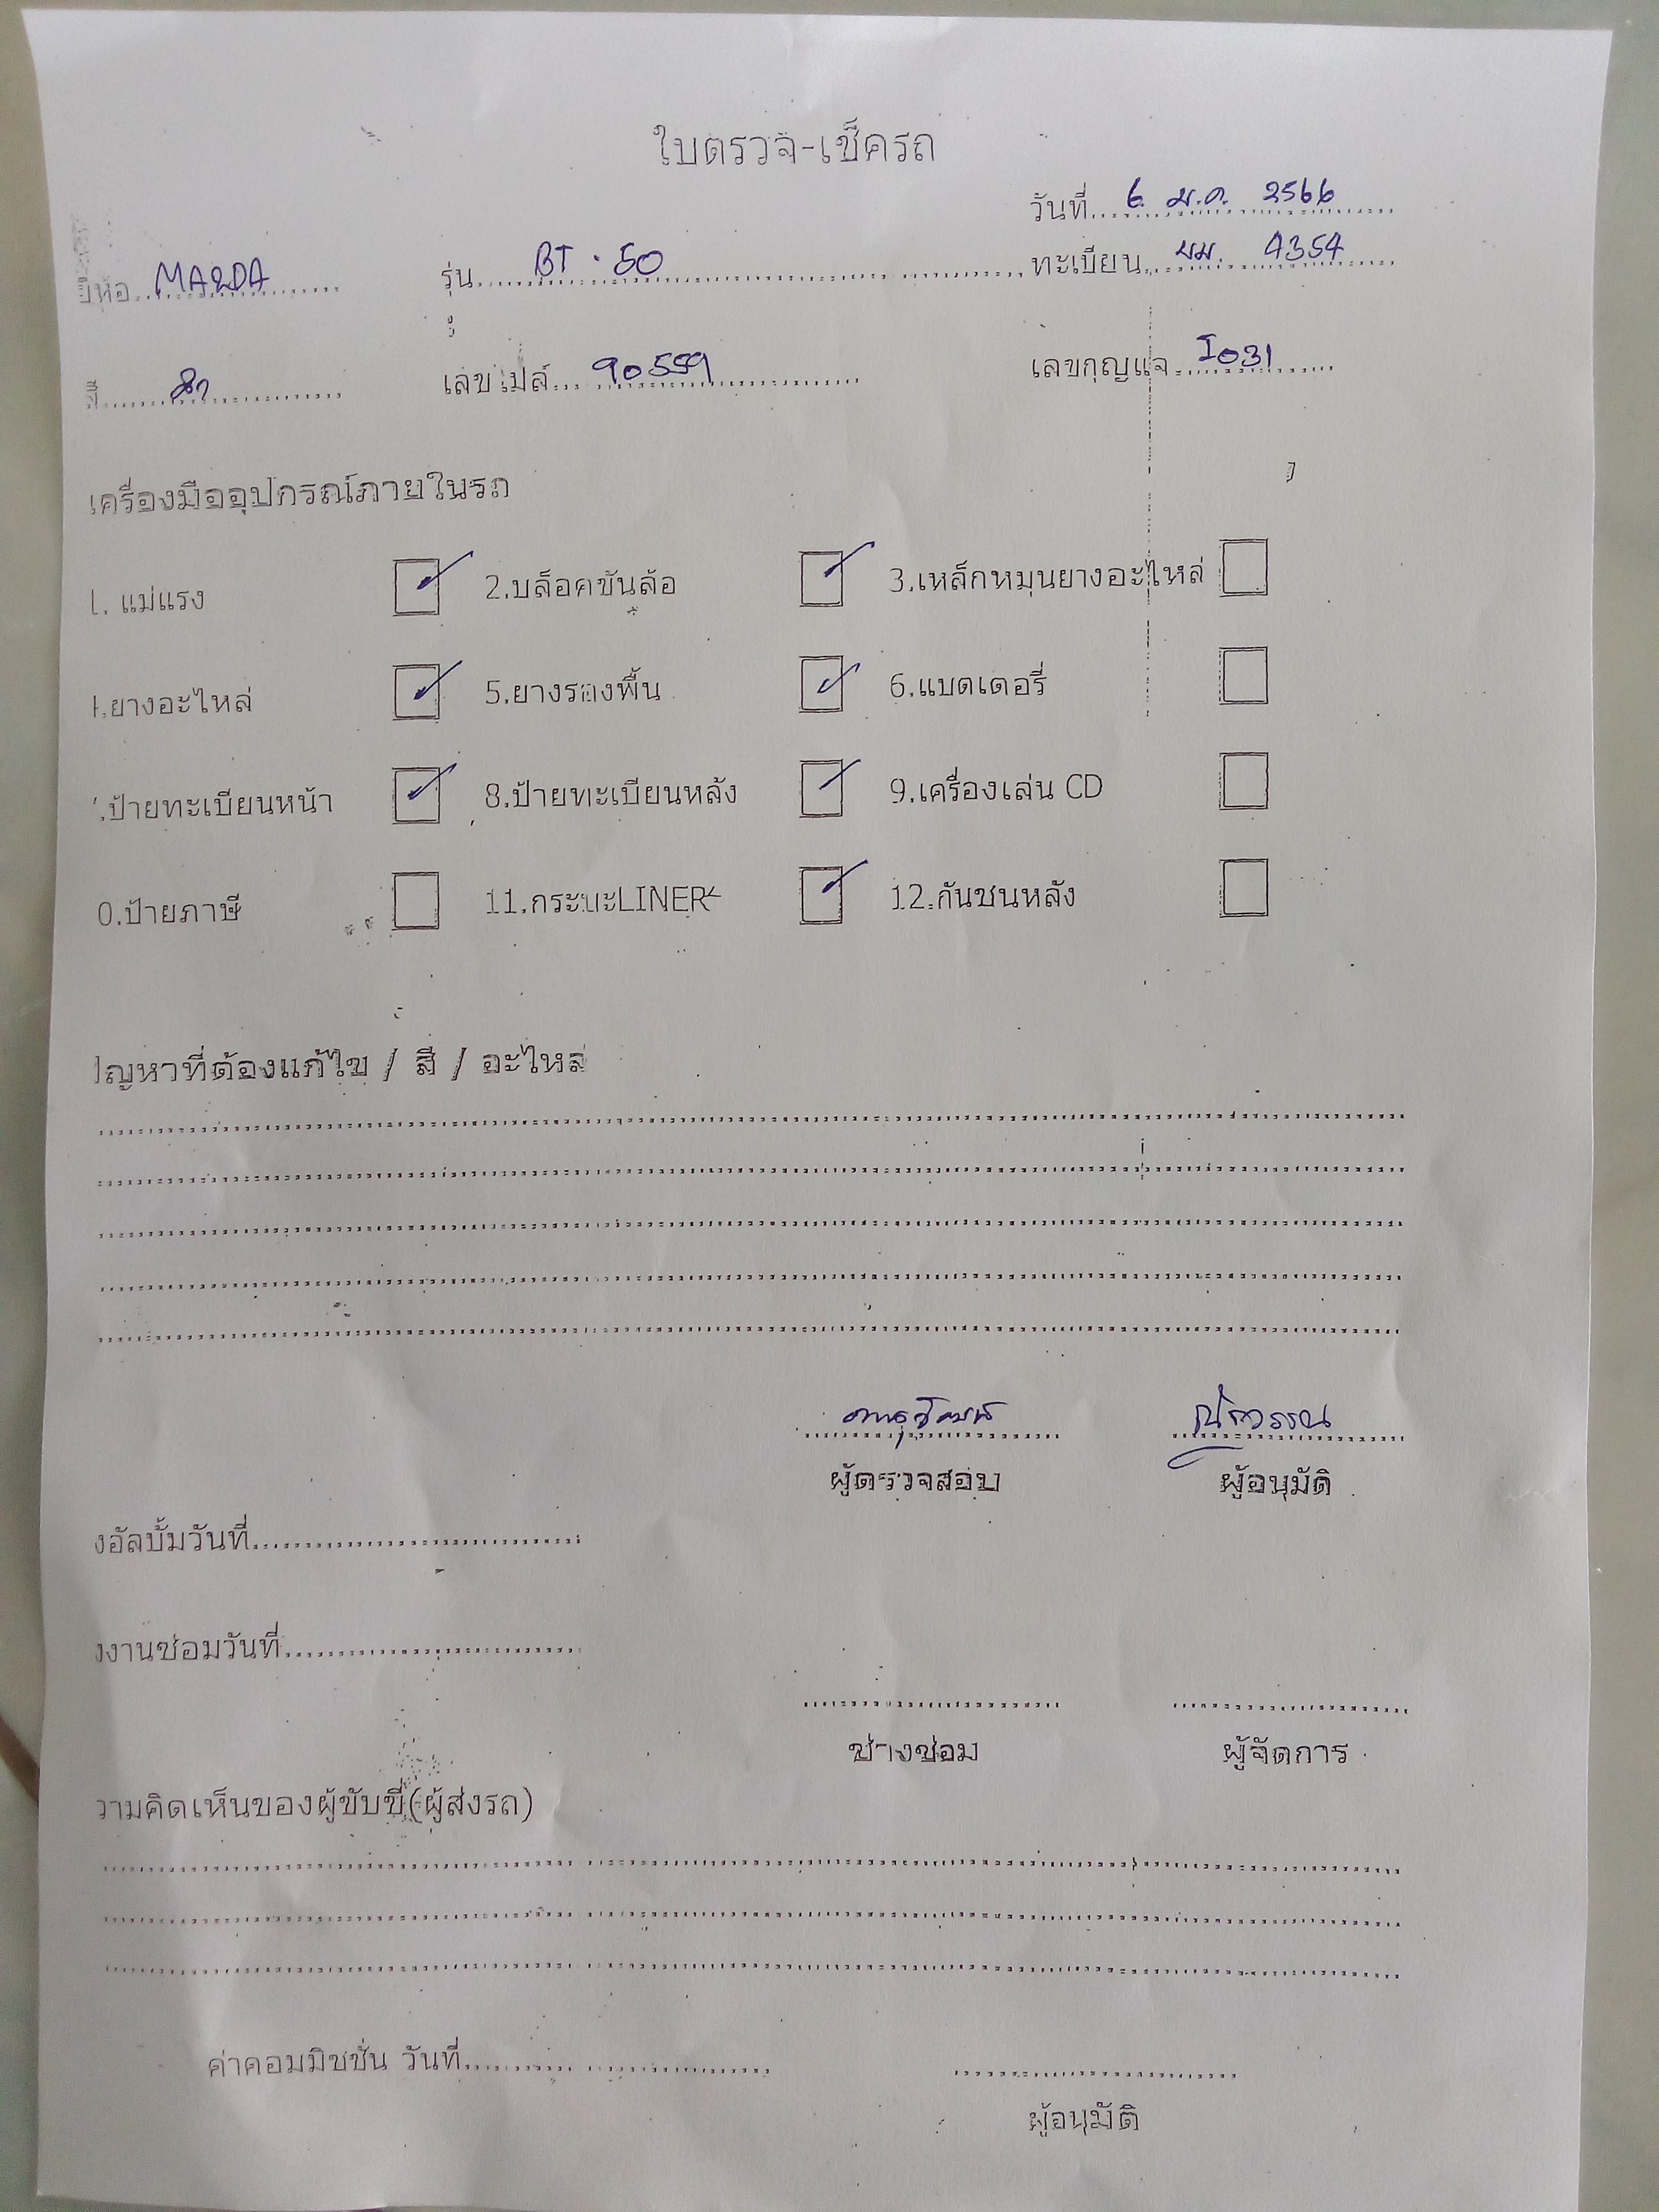 ใบตรวจ-เช็ครถ
วันที่ 6 ม.ค. 2566
ยี่ห้อ MAZDA รุ่น BT-50 ทะเบียน ผม. 4354
สี ดำ เลขไมล์ 90559 เลขกุญแจ I031
เครื่องมืออุปกรณ์ภายในรถ
1. แม่แรง 2.บล็อคขันล้อ 3.เหล็กหมุนยางอะไหล่
4.ยางอะไหล่ 5.ยางรองพื้น 6.แบตเตอรี่
7.ป้ายทะเบียนหน้า 8.ป้ายทะเบียนหลัง 9.เครื่องเล่น CD
0.ป้ายภาษี 11.กระบะLINER 12.กันชนหลัง
ปัญหาที่ต้องแก้ไข / สี / อะไหล่
ณัถวรรณ
ผู้ตรวจสอบ ผู้อนุมัติ
งอัลบั้มวันที่
งงานซ่อมวันที่
ช่างซ่อม ผู้จัดการ
วามคิดเห็นของผู้ขับขี่(ผู้ส่งรถ)
ค่าคอมมิชชั่น วันที่
ผู้อนุมัติ